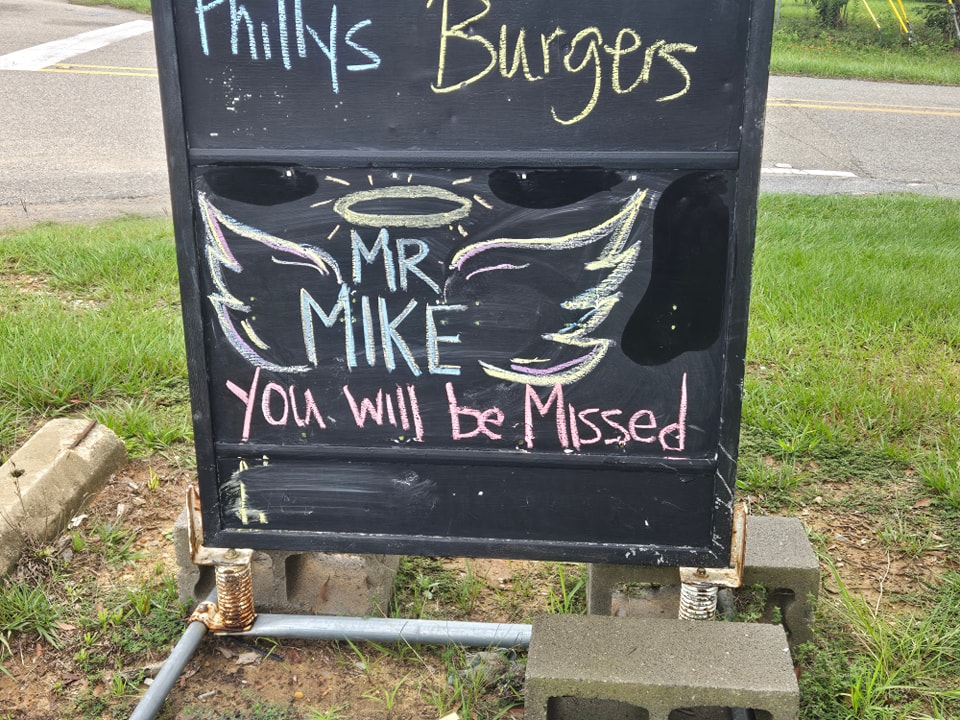 Phillys Burgers
MR
MIKE
You will be Missed